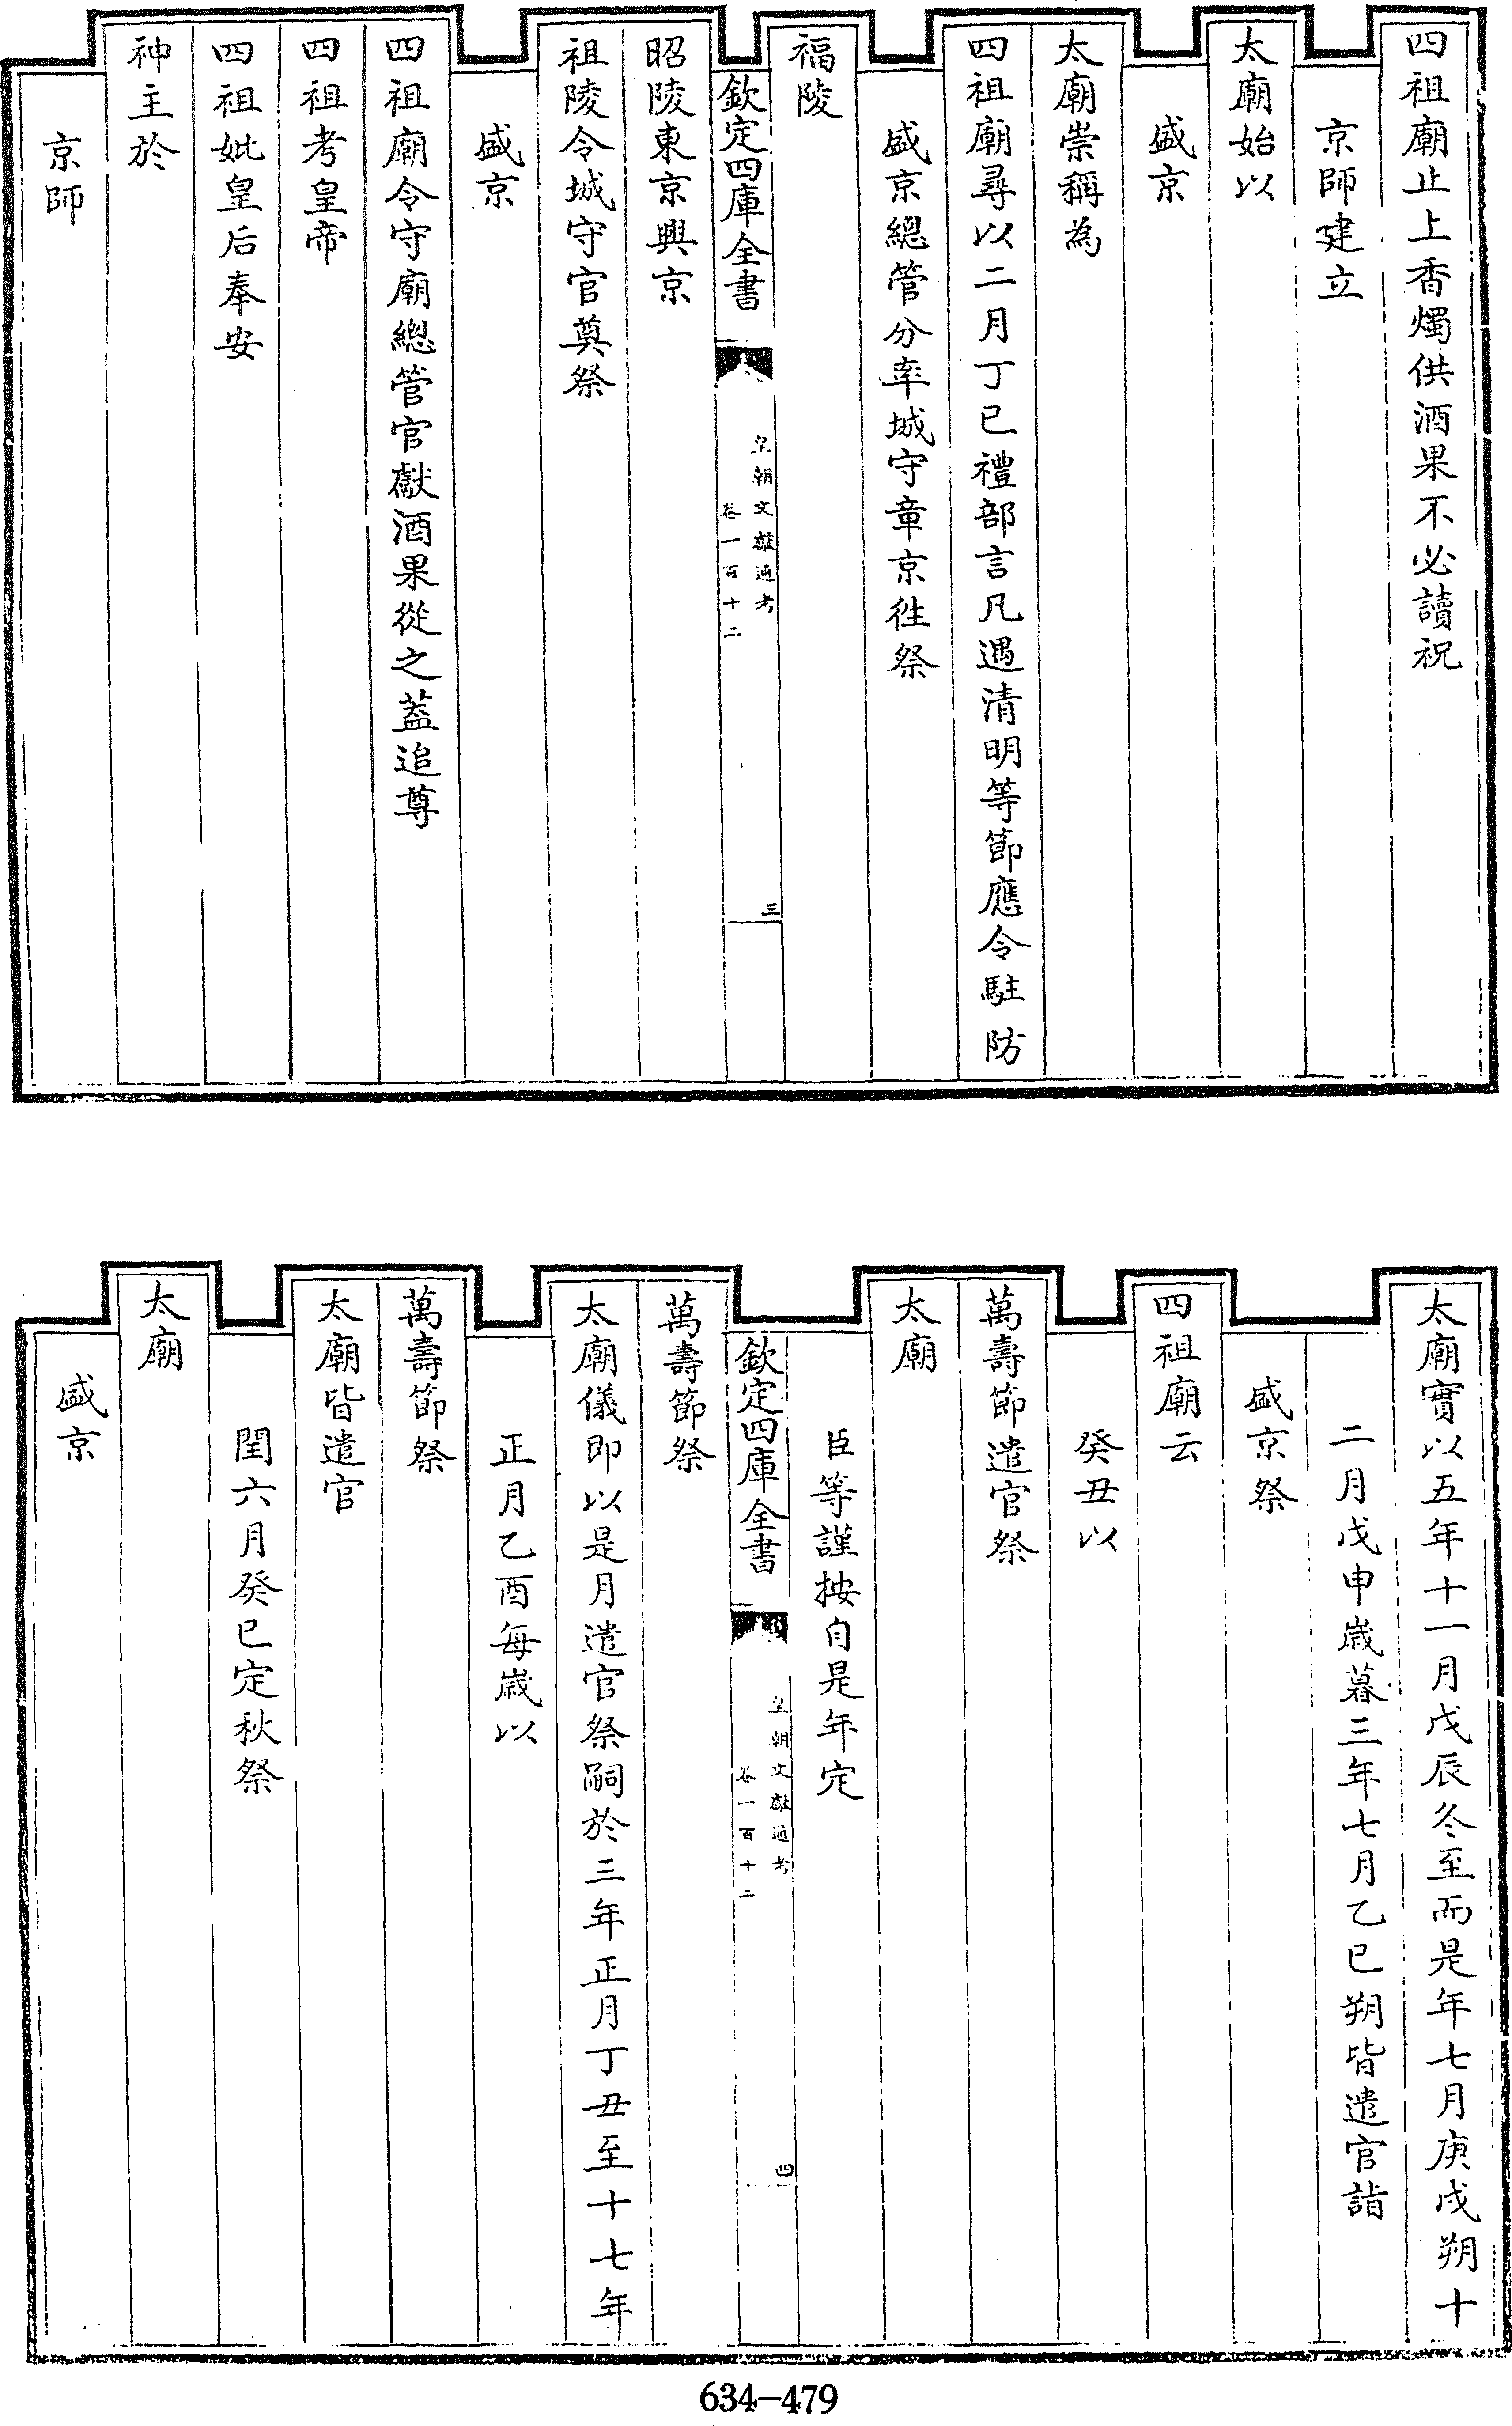 四祖廟止上香燭供酒果不必讀祝
京師建立
太廟始以
盛京
太廟崇稱為
四祖廟尋以二月丁巳禮部言凡遇清明等節應令駐防
盛京總管分率城守章京徃祭
福陵
欽定四庫全書
皇朝文獻通考
卷一百十二
三
昭陵東京興京
祖陵令城守官奠祭
盛京
四祖廟令守廟總管官獻酒果從之葢追尊
四祖考皇帝
四祖妣皇后奉安
神主於
京師
太廟實以五年十一月戊辰冬至而是年七月庚戌朔十
二月戊申歳暮三年七月乙巳朔皆遣官詣
盛京祭
四祖廟云
癸丑以
萬壽節遣官祭
太廟
臣等謹按自是年定
欽定四庫全書
皇朝文獻通考
卷一百十二
四
萬壽節祭
太廟儀即以是月遣官祭嗣於三年正月丁丑至十七年
正月乙酉每歳以
萬壽節祭
太廟皆遣官
閏六月癸巳定秋祭
太廟
盛京
634-479